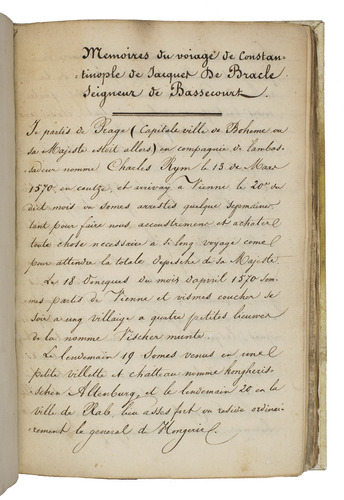 Memoires du voiage de Constan-
tinople de Jacquet De Bracle
Seigneur de Bassecourt.
Je partis de Prage (Capitale ville de Boheme ou
sa Majeste estoit allors) en compagnie de lambas-
sadeur nomme Charles Rym le 13 de Mars
1570 en coutze, et arrivay a Vienne le 20e du
dict mois ou somes arrestes quelque sepmaine,
tant pour faire nous accoustremens et achater
toute chose necessaire a si long voyage come
pour attendre la totale depesche de sa Majeste.
Le 18 Doncques du mois d'april 1570 som-
mes partis de Vienne et vismes coucher se
soir a ung villaige a quatre petites lieuwes
de la nomme Vischer mente.
Le lendemain 19 Somes venus en une
petite villette et chatteau nomme hongheris-
schen Altenburg, et le lendemain 20 en la
ville de Rab, lieu asses fort ou reside ordinai-
rement le general de Hongerie.